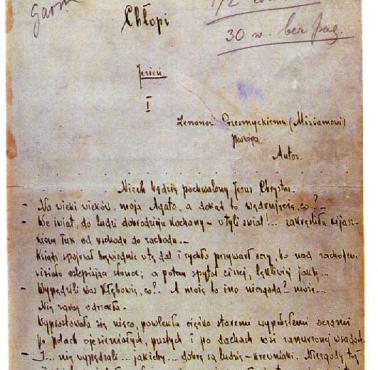 Gaor
1/2
Chłopi
30 w. bez pag.
Jesień
I
Zenonowi Przesmyckiemu (Miriamowi)
Autor.
Niech będzie pochwalony Jezus Chrystus.
– Na wieki wieków, moja Agato, a dokąd to wędrujecie, co? –
– We świat, do ludzi dobrodzieju kochany – w tyli świat... zakreśliła kijasz-
kiem łuk od wschodu do zachodu...
Ksiądz spojrzał bezwiednie w tę dal i rychło przywarł oczy, bo nad zachodem
wisiało oślepiające słońce; a potem spytał ciszej, lękliwiej jakby...
– Wypędzili was Kłębowie, co?. A może to ino niezgoda?.. może...
Nie zaraz odrzekła..
Wyprostowała się nieco, powlekła ciężko staremi wypełzłemi oczami
po polach ojesieniałych, pustych i po dachach wsi zanurzonej w sadach.
– I... nie wypędzali.. jakżeby... dobre są ludzie – krewniaki. Niezgody też